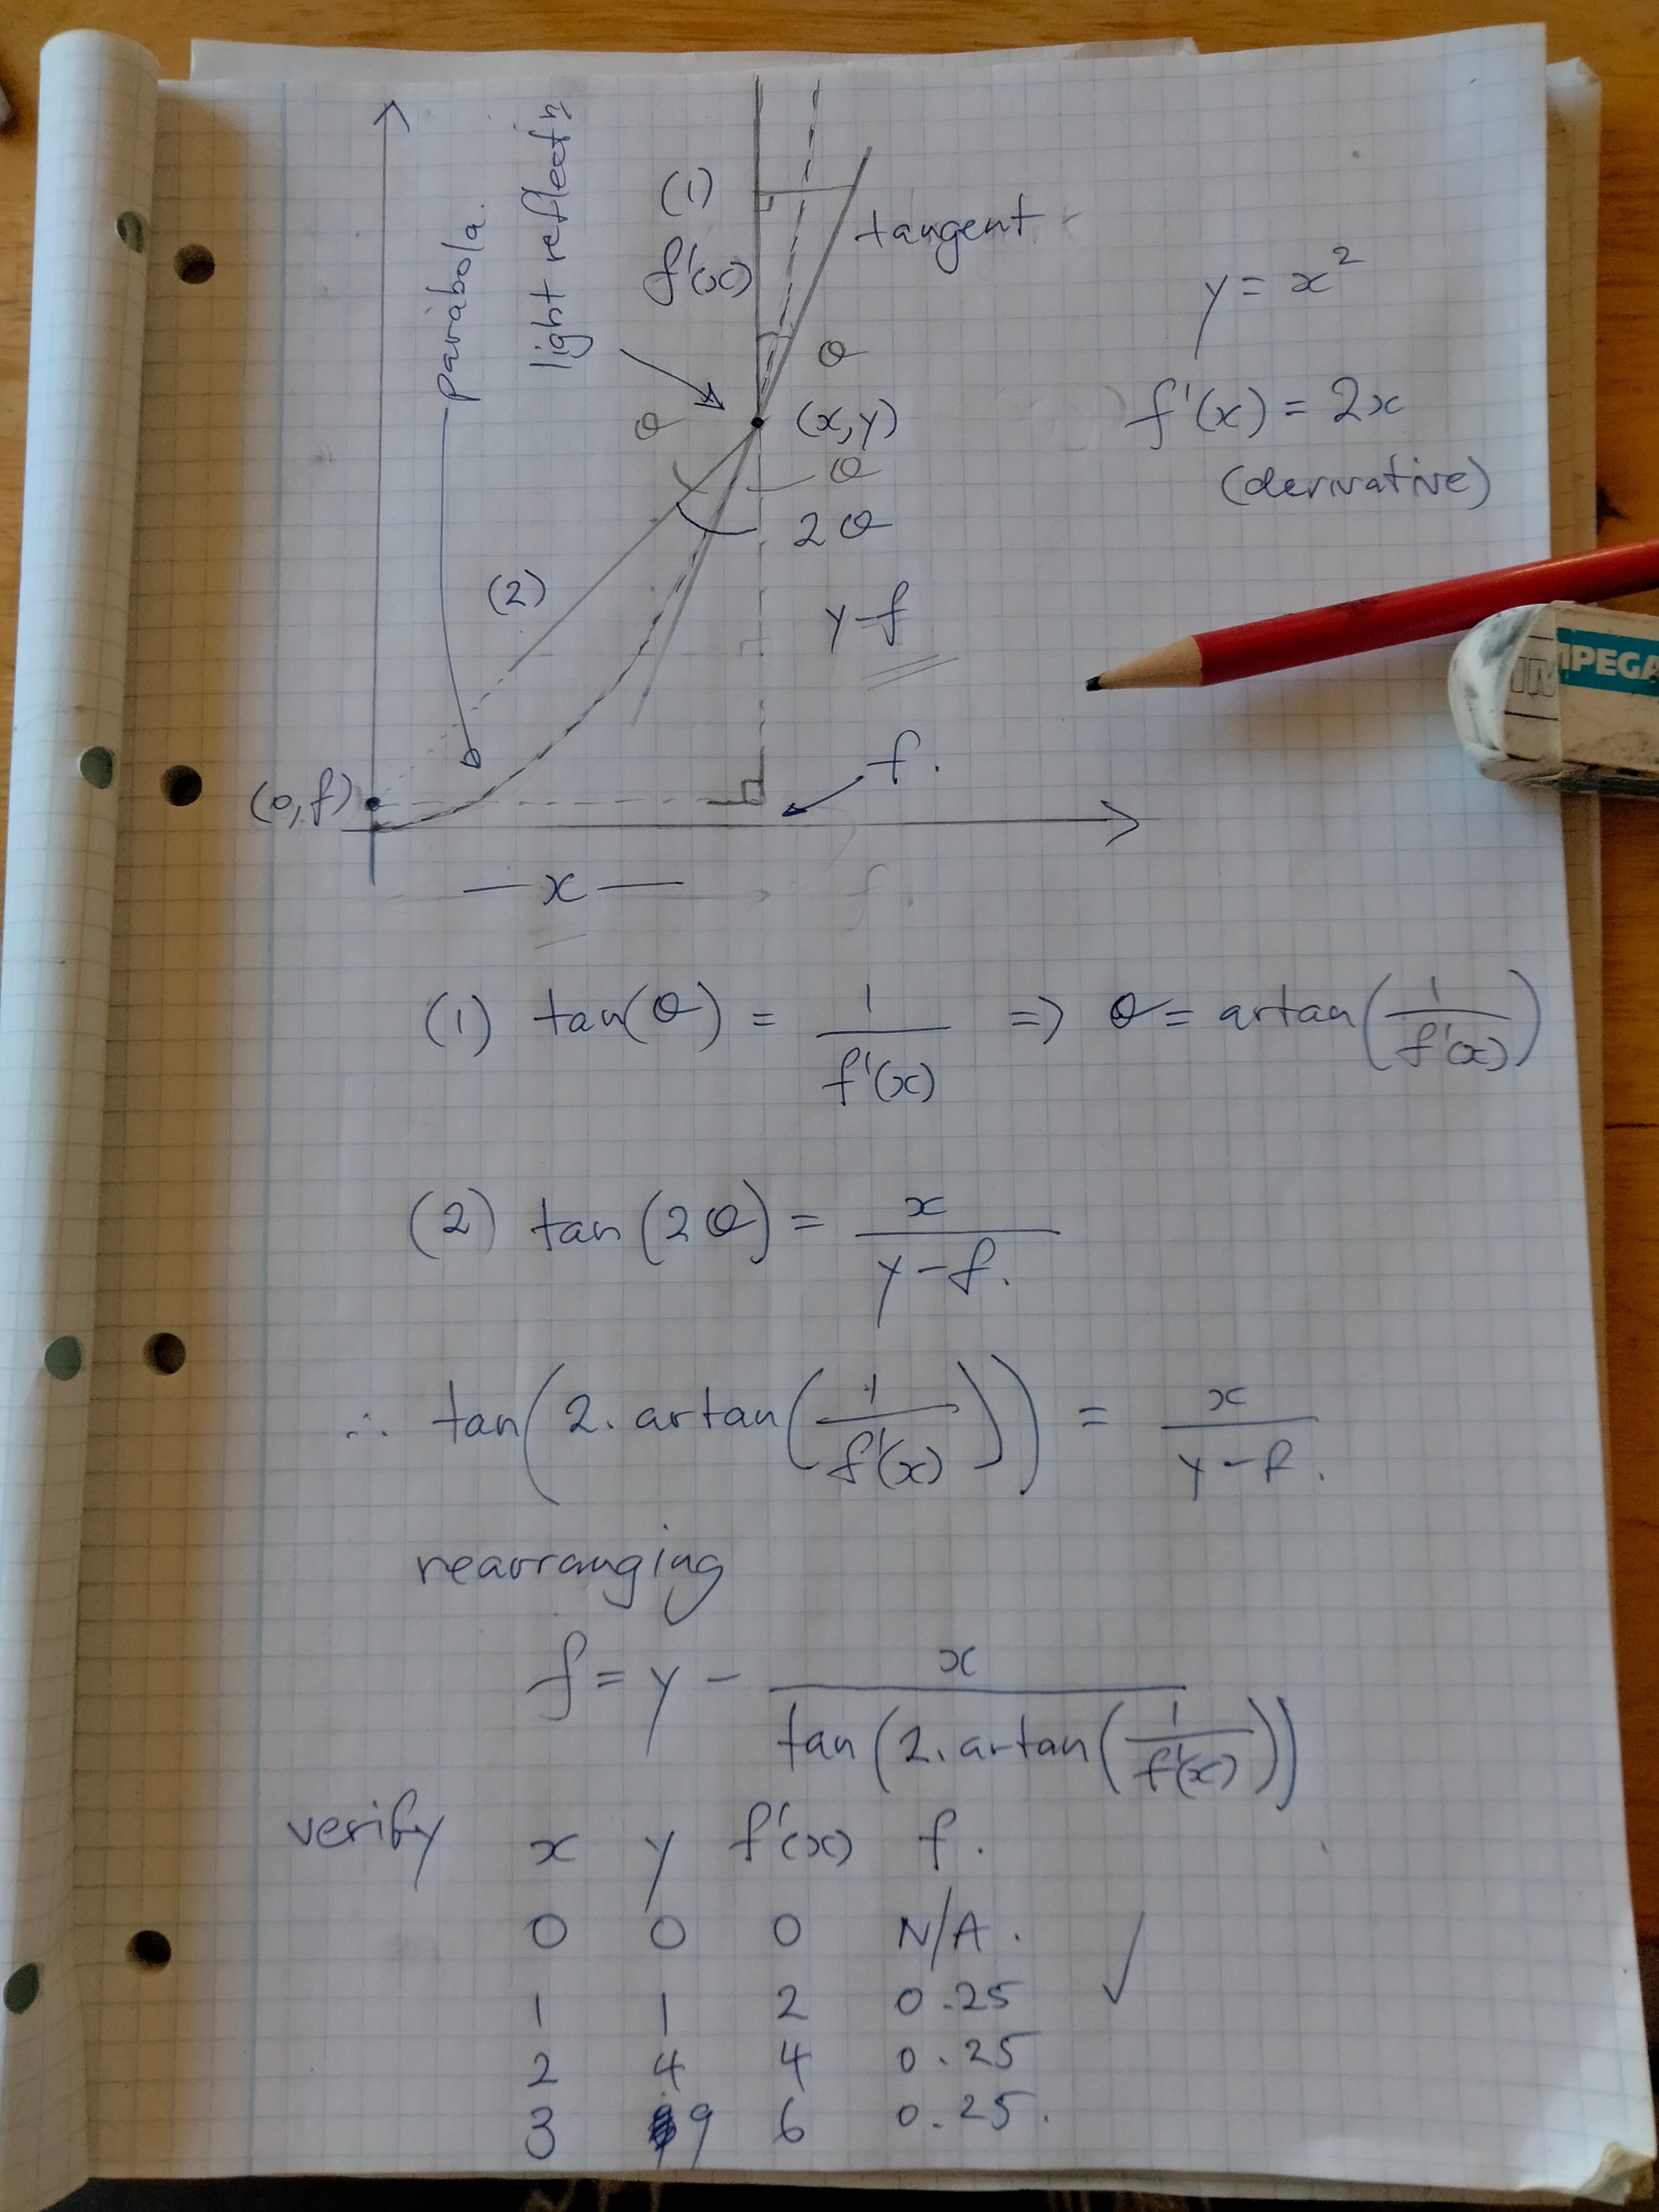 parabola.
light reflectn
(1)
f'(x)
tangent
θ
y = x²
θ
(x,y)
f'(x) = 2x
θ
(derivative)
2θ
(2)
y-f
f.
(0,f)
— x —
f.
(1) tan(θ) = 1/f'(x) => θ = artan(1/f'(x))
(2) tan(2θ) = x/y-f.
∴ tan(2. artan(1/f'(x))) = x/y-f.
rearranging
f = y - x/tan(2. artan(1/f'(x)))
verify x y f'(x) f.
0 0 0 N/A. ✓
1 1 2 0.25
2 4 4 0.25
3 9 6 0.25.
MPEGA